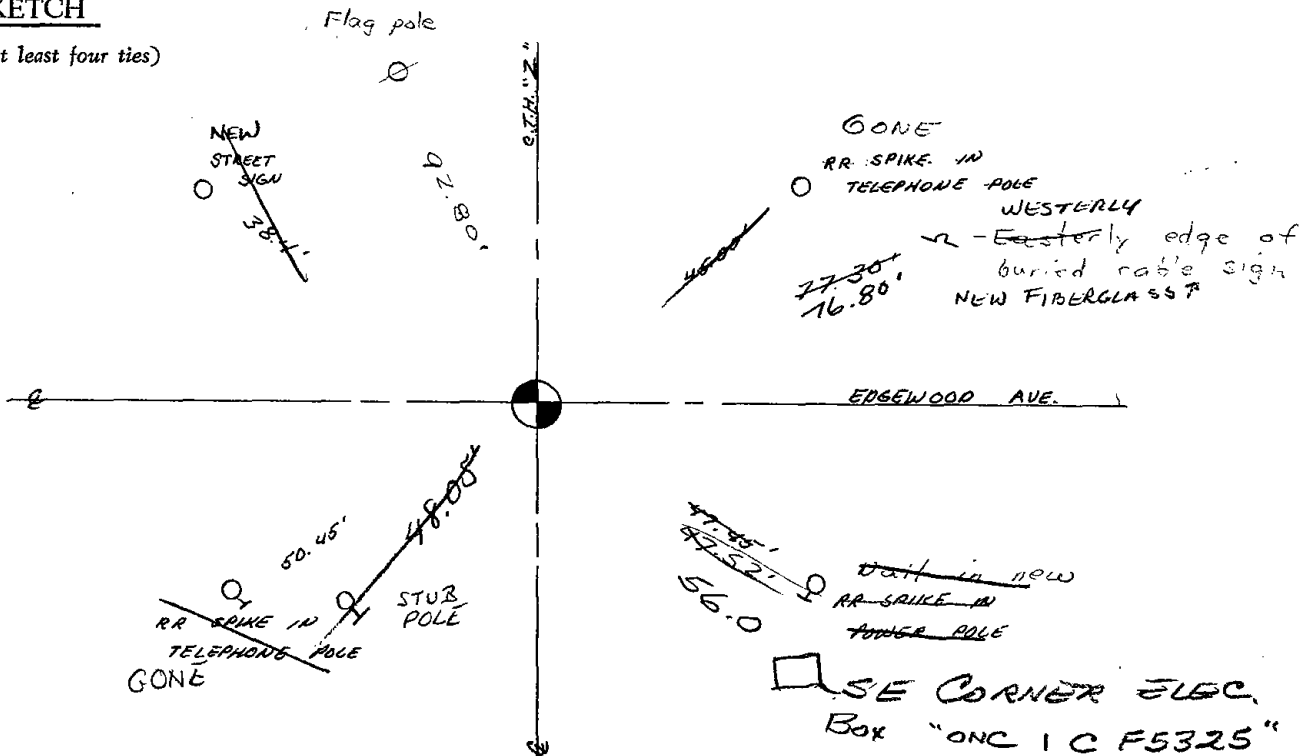 KETCH
t least four ties)
Flag pole
C.T.H. "Z"
92.80'
NEW
STREET
SIGN
38.4'
GONE
RR SPIKE IN
TELEPHONE POLE
WESTERLY
-Easterly edge of
buried cable sign
NEW FIBERGLASS
45.00'
77.30'
76.80'
EDGEWOOD AVE.
50.45'
48.05'
STUB
POLE
RR SPIKE IN
TELEPHONE POLE
GONE
47.45'
47.52'
56.0
Nail in new
RR SPIKE IN
POWER POLE
SE CORNER ELEC.
BOX "ONC 1 C F5325"